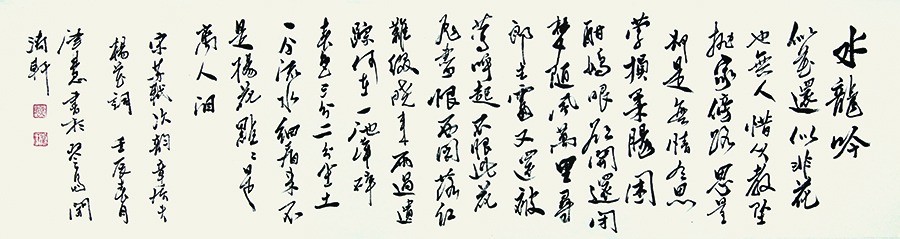 水龍吟
似花還似非花
也無人惜从教墜
抛家傍路思量
却是無情有思
縈損柔腸困
酣嬌眼欲開還閉
夢隨風萬里尋
郎去處又還被
鶯呼起不恨此花
飛盡恨西園落紅
難綴曉來雨過遺
踪何在一池萍碎
春色三分二分塵土
一分流水細看來不
是楊花點〻是
離人泪
宋蘇軾次韻章質夫
楊花詞 壬辰春月
慧書於
軒